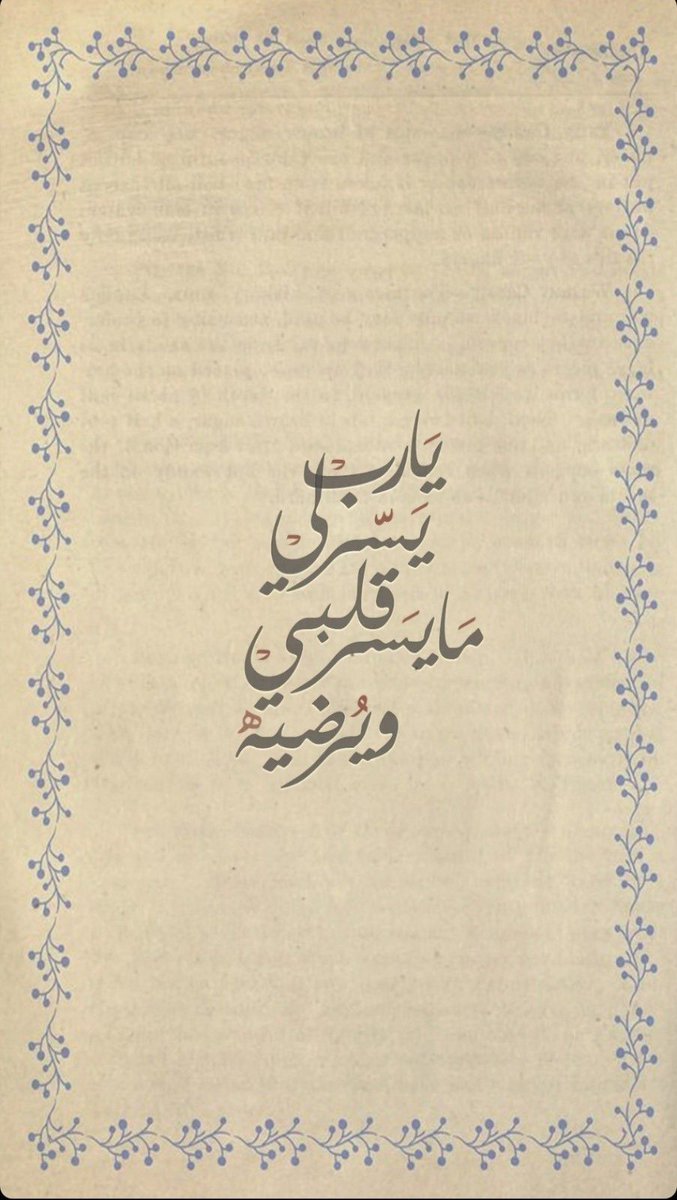 يَارب
يَسّر لي
مَا يَسَر قلبي
ويُرضيه